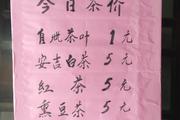 今日茶价
自批茶叶 1元
安吉白茶 5元
红茶 5元
熏豆茶 5元